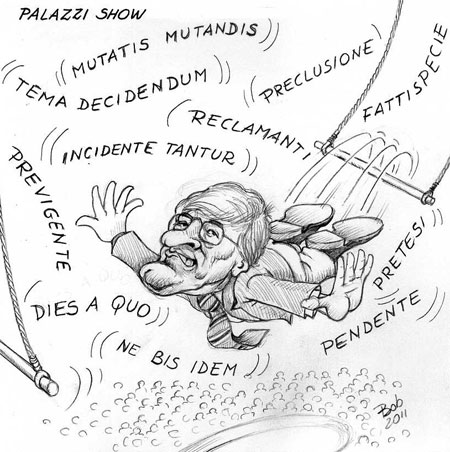 PALAZZI SHOW
MUTATIS MUTANDIS
TEMA DECIDENDUM
PRECLUSIONE
FATTISPECIE
RECLAMANTI
INCIDENTE TANTUR
PREVIGENTE
PRETESI
DIES A QUO
PENDENTE
NE BIS IDEM
Bob
2011